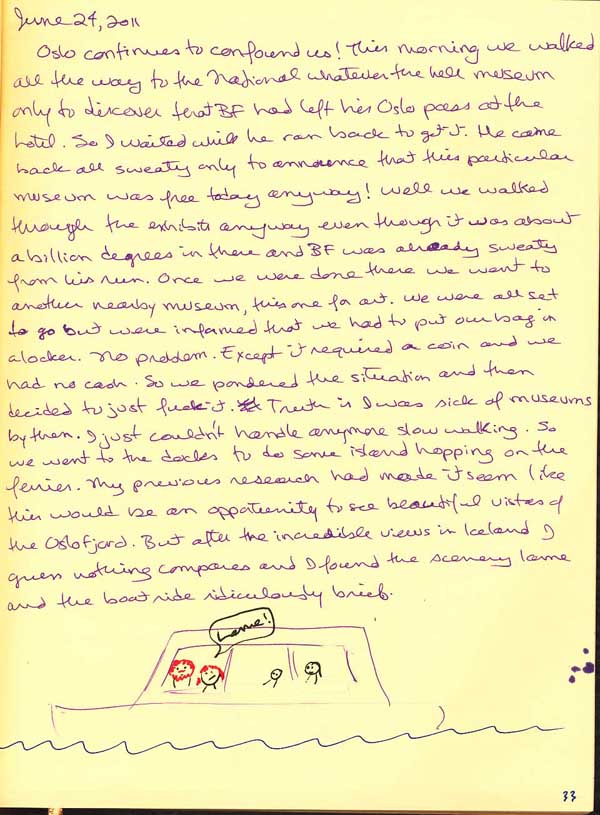 June 24, 2011
Oslo continues to confound us! This morning we walked
all the way to the National whatever the hell museum
only to discover that BF had left his Oslo pass at the
hotel. So I waited while he ran back to get it. He came
back all sweaty only to announce that this particular
museum was free today anyway! Well we walked
through the exhibits anyway even though it was about
a billion degrees in there and BF was already sweaty
from his run. Once we were done there we went to
another nearby museum, this one for art. We were all set
to go but were informed that we had to put our bag in
a locker. No problem. Except it required a coin and we
had no cash. So we pondered the situation and then
decided to just fuck it. Truth is I was sick of museums
by then. I just couldn't handle anymore slow walking. So
we went to the docks to do some island hopping on the
ferries. My previous research had made it seem like
this would be an opportunity to see beautiful vistas of
the Oslofjord. But after the incredible views in Iceland I
guess nothing compares and I found the scenery lame
and the boat ride ridiculously brief.
Lame!
33